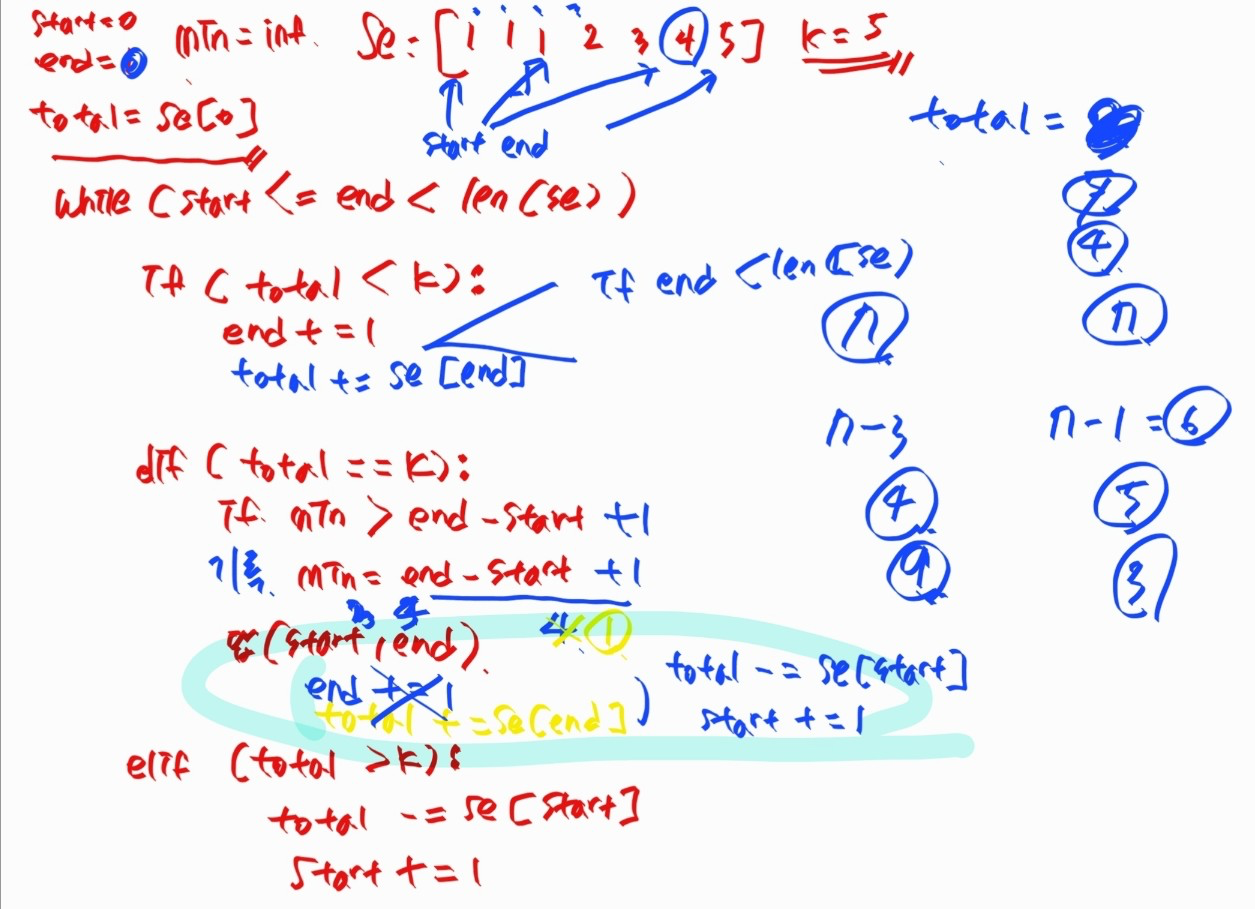 start=0
end=0
min = inf. Se: [1 1 1 2 3 4 5] k=5
total = se[0]
start end
total =
while (start <= end < len(se))
7
4
if (total < k):
if end < len[se)
end += 1
total += se[end]
7
7
7-3
7-1 = 6
elif (total == k):
4
5
if min > end - start +1
기록 min = end - start +1
9
3
4 1
(start, end)
end += 1
total += se[end] )
total -= se[start]
start += 1
elif (total > k):
total -= se[start]
start += 1